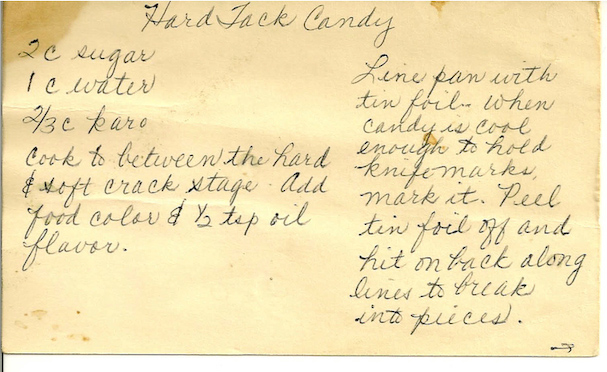 Hard Tack Candy
2 c sugar
1 c water
2/3 c karo
cook to between the hard
& soft crack stage. Add
food color & ½ tsp oil
flavor.
Line pan with
tin foil. When
candy is cool
enough to hold
knifemarks,
mark it. Peel
tin foil off and
hit on back along
lines to break
into pieces.